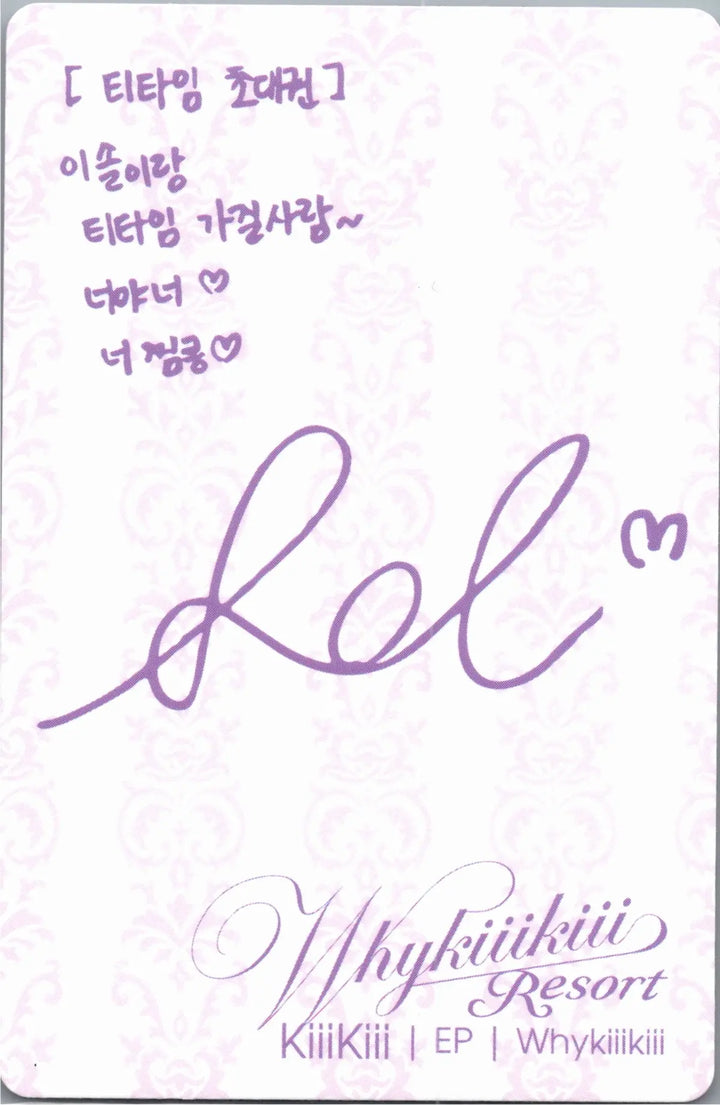 [ 티타임 초대권 ]
이솔이랑
티타임 가걸사람~
너야너 ♡
너 찜콩♡
Sol
Whykiiikiii
Resort
KiiiKiii | EP | Whykiiikiii